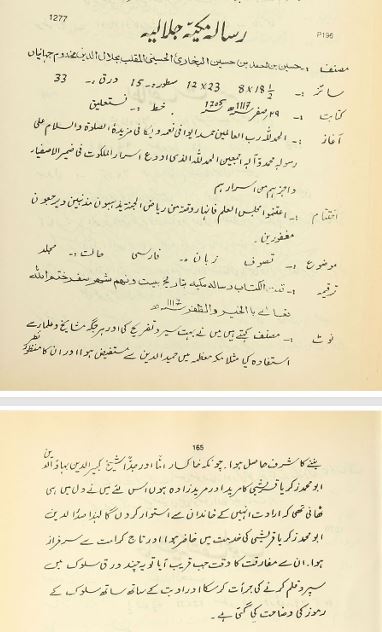 1277
P196
رسالہ مکیہ جلالیہ
مصنف :۔ حسین بن احمد بن حسین البخاری الحسینی الملقب بجلال الدین مخدوم جہانیاں
سائز :۔ 8 x 18½ 12 x 23 سطور :۔ 15 ورق :۔ 33
کتابت :۔ ۲۹ صفر 1117ھ 1705ء خط :۔ نستعلیق
آغاز :۔ الحمد للہ رب العالمین حمد ایوافی نعمہ ویکافی مزیدہ الصلوۃ والسلام علی
رسولہ محمد وآلہ اجمعین الحمد للہ الذی اودع اسرار الملکوت فی ضمیر الاصفیاء
من اسرارہم
اختتام :۔ اغتنموا مجلس العلم فانہا روضۃ من ریاض الجنۃ یذہبون مذنبین ویرجعون
مغفورین۔
موضوع :۔ تصوف زبان :۔ فارسی حالت :۔ مجلد
ترقیمہ :۔ تمت الکتاب رسالہ مکیہ بتاریخ بیست ونہم شہر صفر ختم اللہ
بالخیر والظفر 1117ھ
نوٹ :۔ مصنف کہتے ہیں میں نے بہت سیر و تفریح کی اور ہر جگہ مشائخ و علماء سے
استفادہ کیا مثلا مکہ معظمہ میں حمید الدین سے مستفیض ہوا اور ان کا منظور نظر
165
بننے کا شرف حاصل ہوا۔ چونکہ خاکسار اباً اور جداً الشیخ کبیر الدین بہاؤ الدین
ابو محمد زکریا قریشی کا مرید اور مرید زادہ ہوں اس لئے میں نے دل میں ہی
ٹھانی تھی کہ ارادت انہیں کے خاندان سے استوار کروں گا لہذا صدر الدین
ابو محمد زکریا قریشی کی خدمت میں حاضر ہوا اور تاج کرامت سے سرفراز
ہوا۔ ان سے مفارقت کا وقت جب قریب آیا تو یہ چند ورق سلوک میں
سپرد قلم کرنے کی جرأت کر سکا اور ادبیت کے ساتھ ساتھ سلوک کے
رموز کی وضاحت کی گئی ہے۔